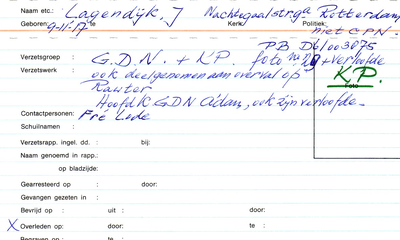 Naam etc.: Lagendijk, J Nachtegaalstr 9a Rotterdam
Geboren: 9-11-'17 Kerk: Politiek: niet CPN-
PB DL 003075
Verzetsgroep : G.D.N. + KP. foto + verloofde
Verzetswerk : ook deelgenomen aan overval op K.P.
Rauter Foto
Hoofdk GDN A'dam, ook zijn verloofde-
Contactpersonen: Fré Lede
Schuilnaam :
Verzetsrapp. ingel. dd. : bij:
Naam genoemd in rapp.:
op bladzijde:
Gearresteerd op : door:
Gevangen gezeten in :
Bevrijd op : uit : door:
X Overleden op: door: te :
Begraven op : te :